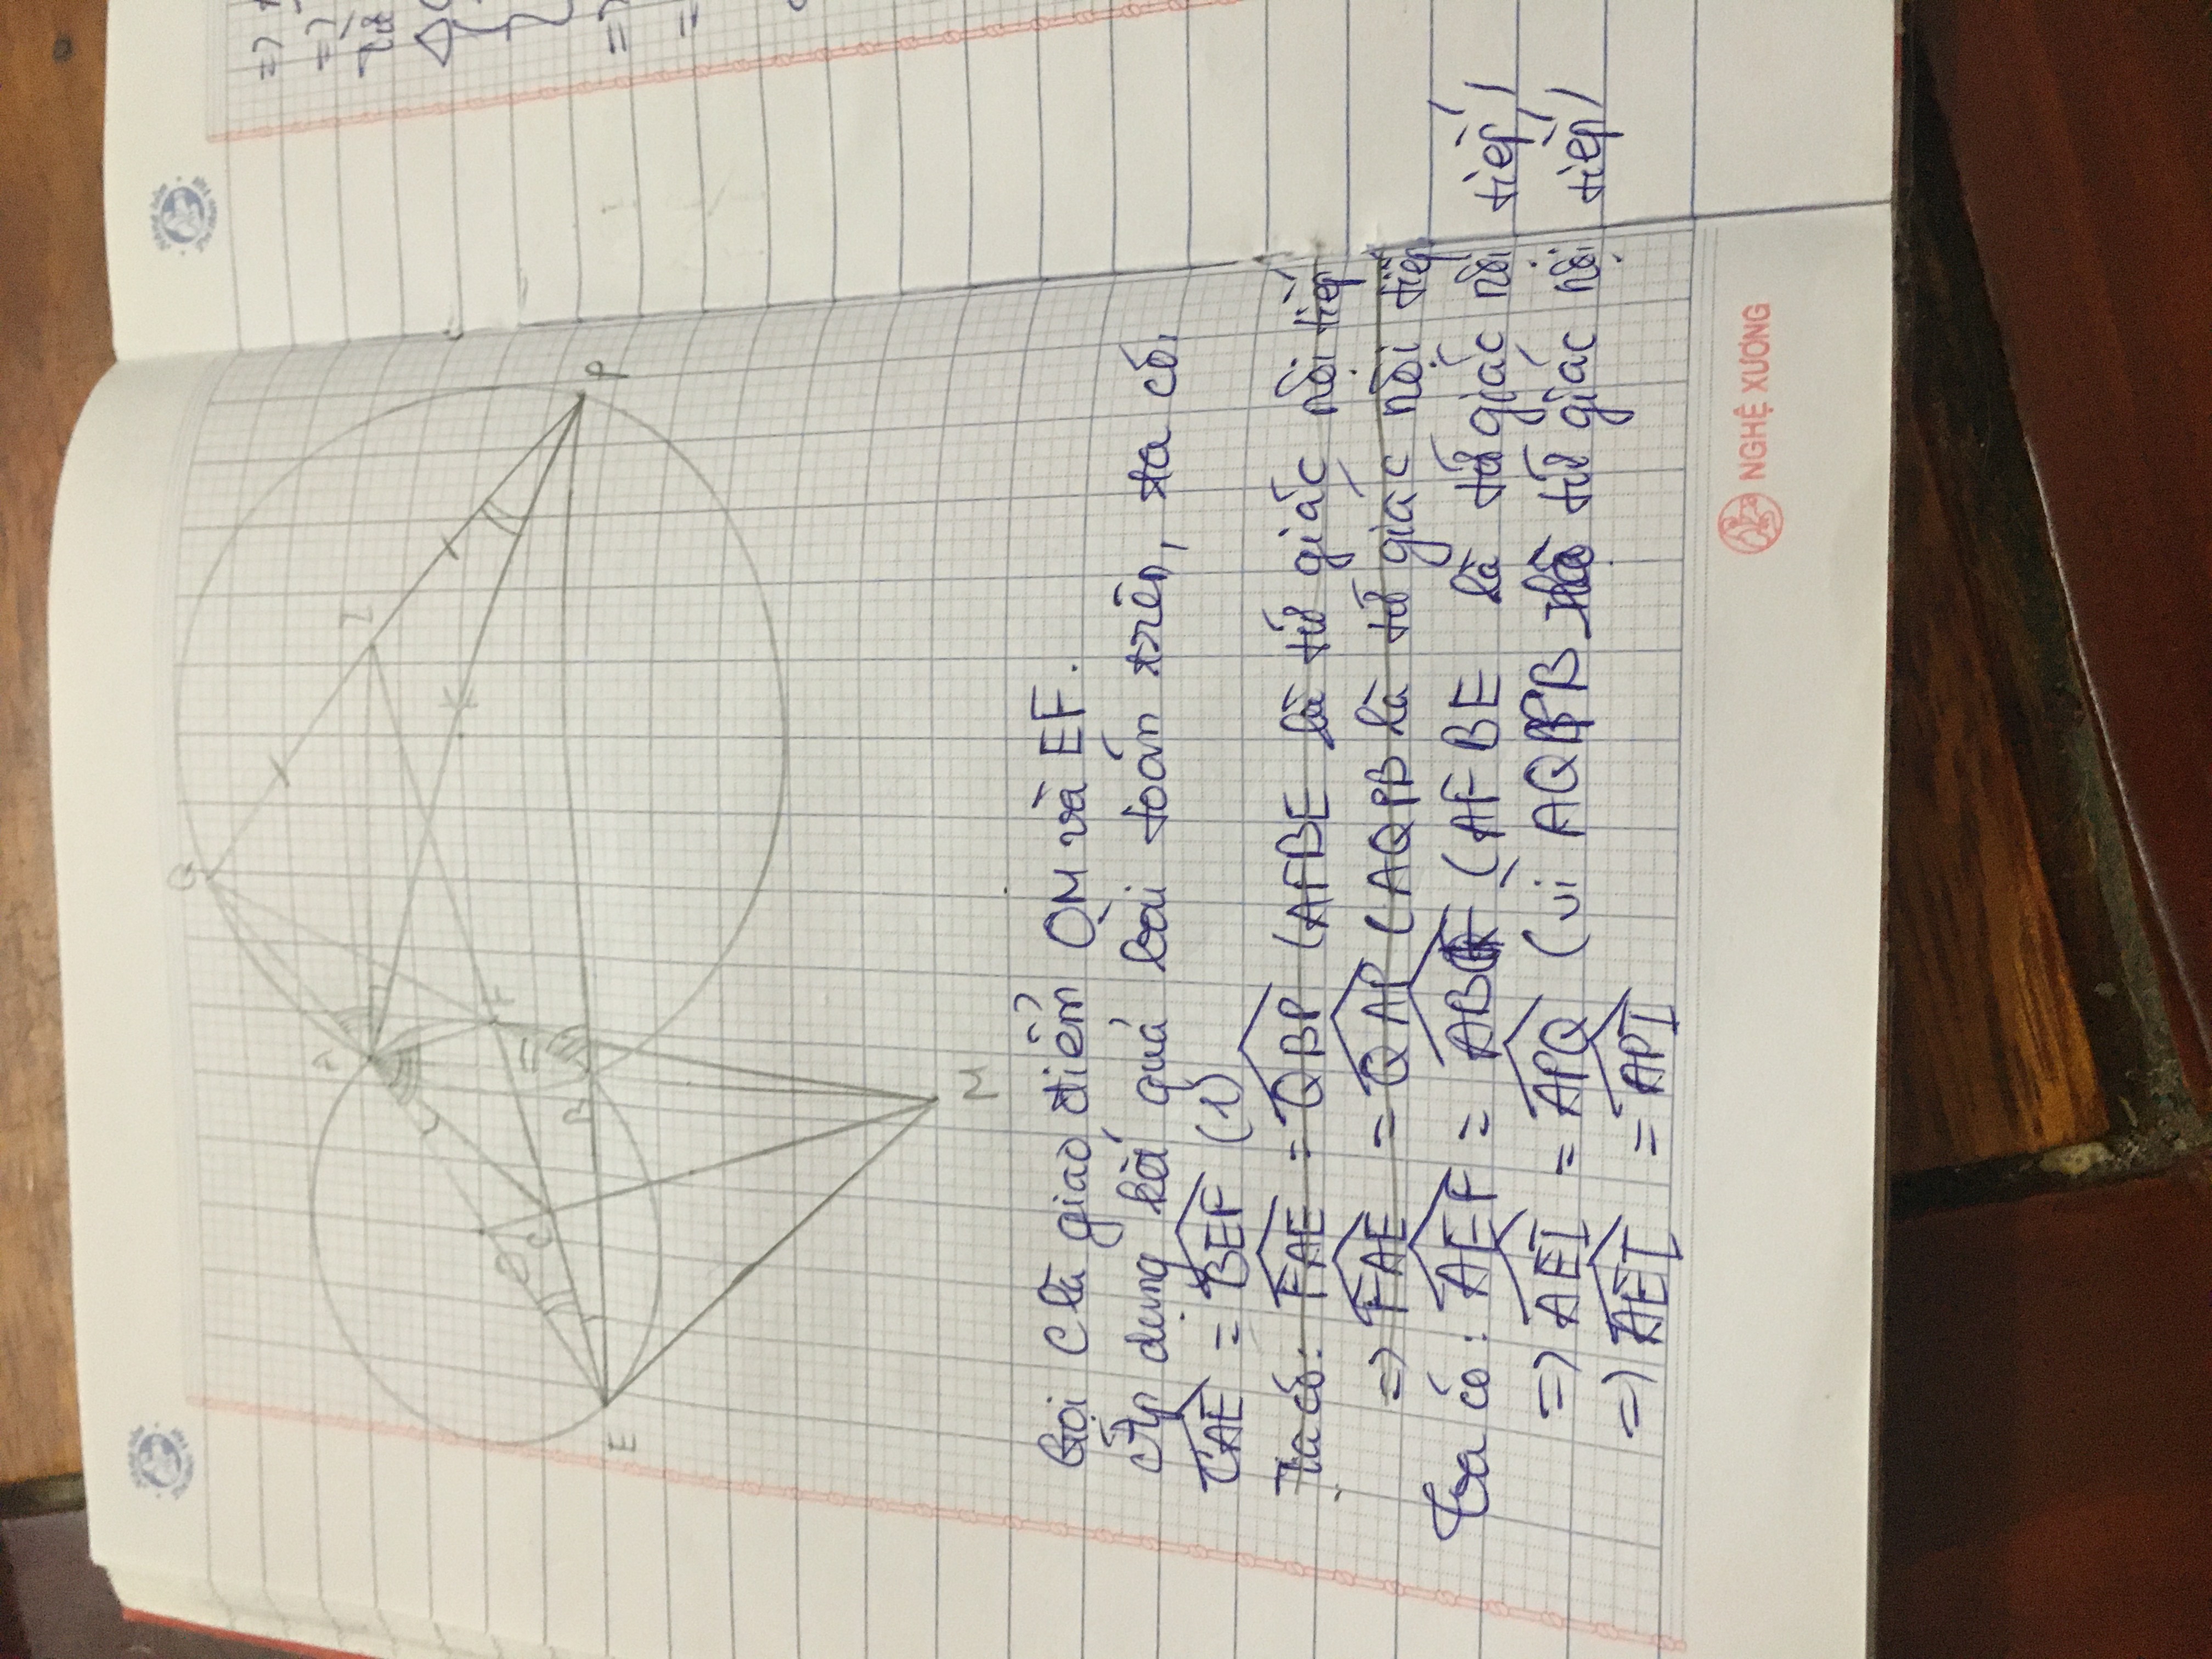 Q
A
I
O
K
F
C
B
E
P
M
=>
=>
Từ
=>
=
Gọi C là giao điểm OM và EF.
Áp dụng kết quả bài toán trên, ta có,
CAE = BEF (1)
Ta có: FAE = QBP (AFBE là tứ giác nội tiếp
=> FAE = QAP (AQPB là tứ giác nội tiếp
Ta có: AEF = ABF (AFBE là tứ giác nội tiếp)
=> AEI = APQ (vì AQPB là tứ giác nội tiếp)
=> AEI = API
NGHỆ XƯƠNG